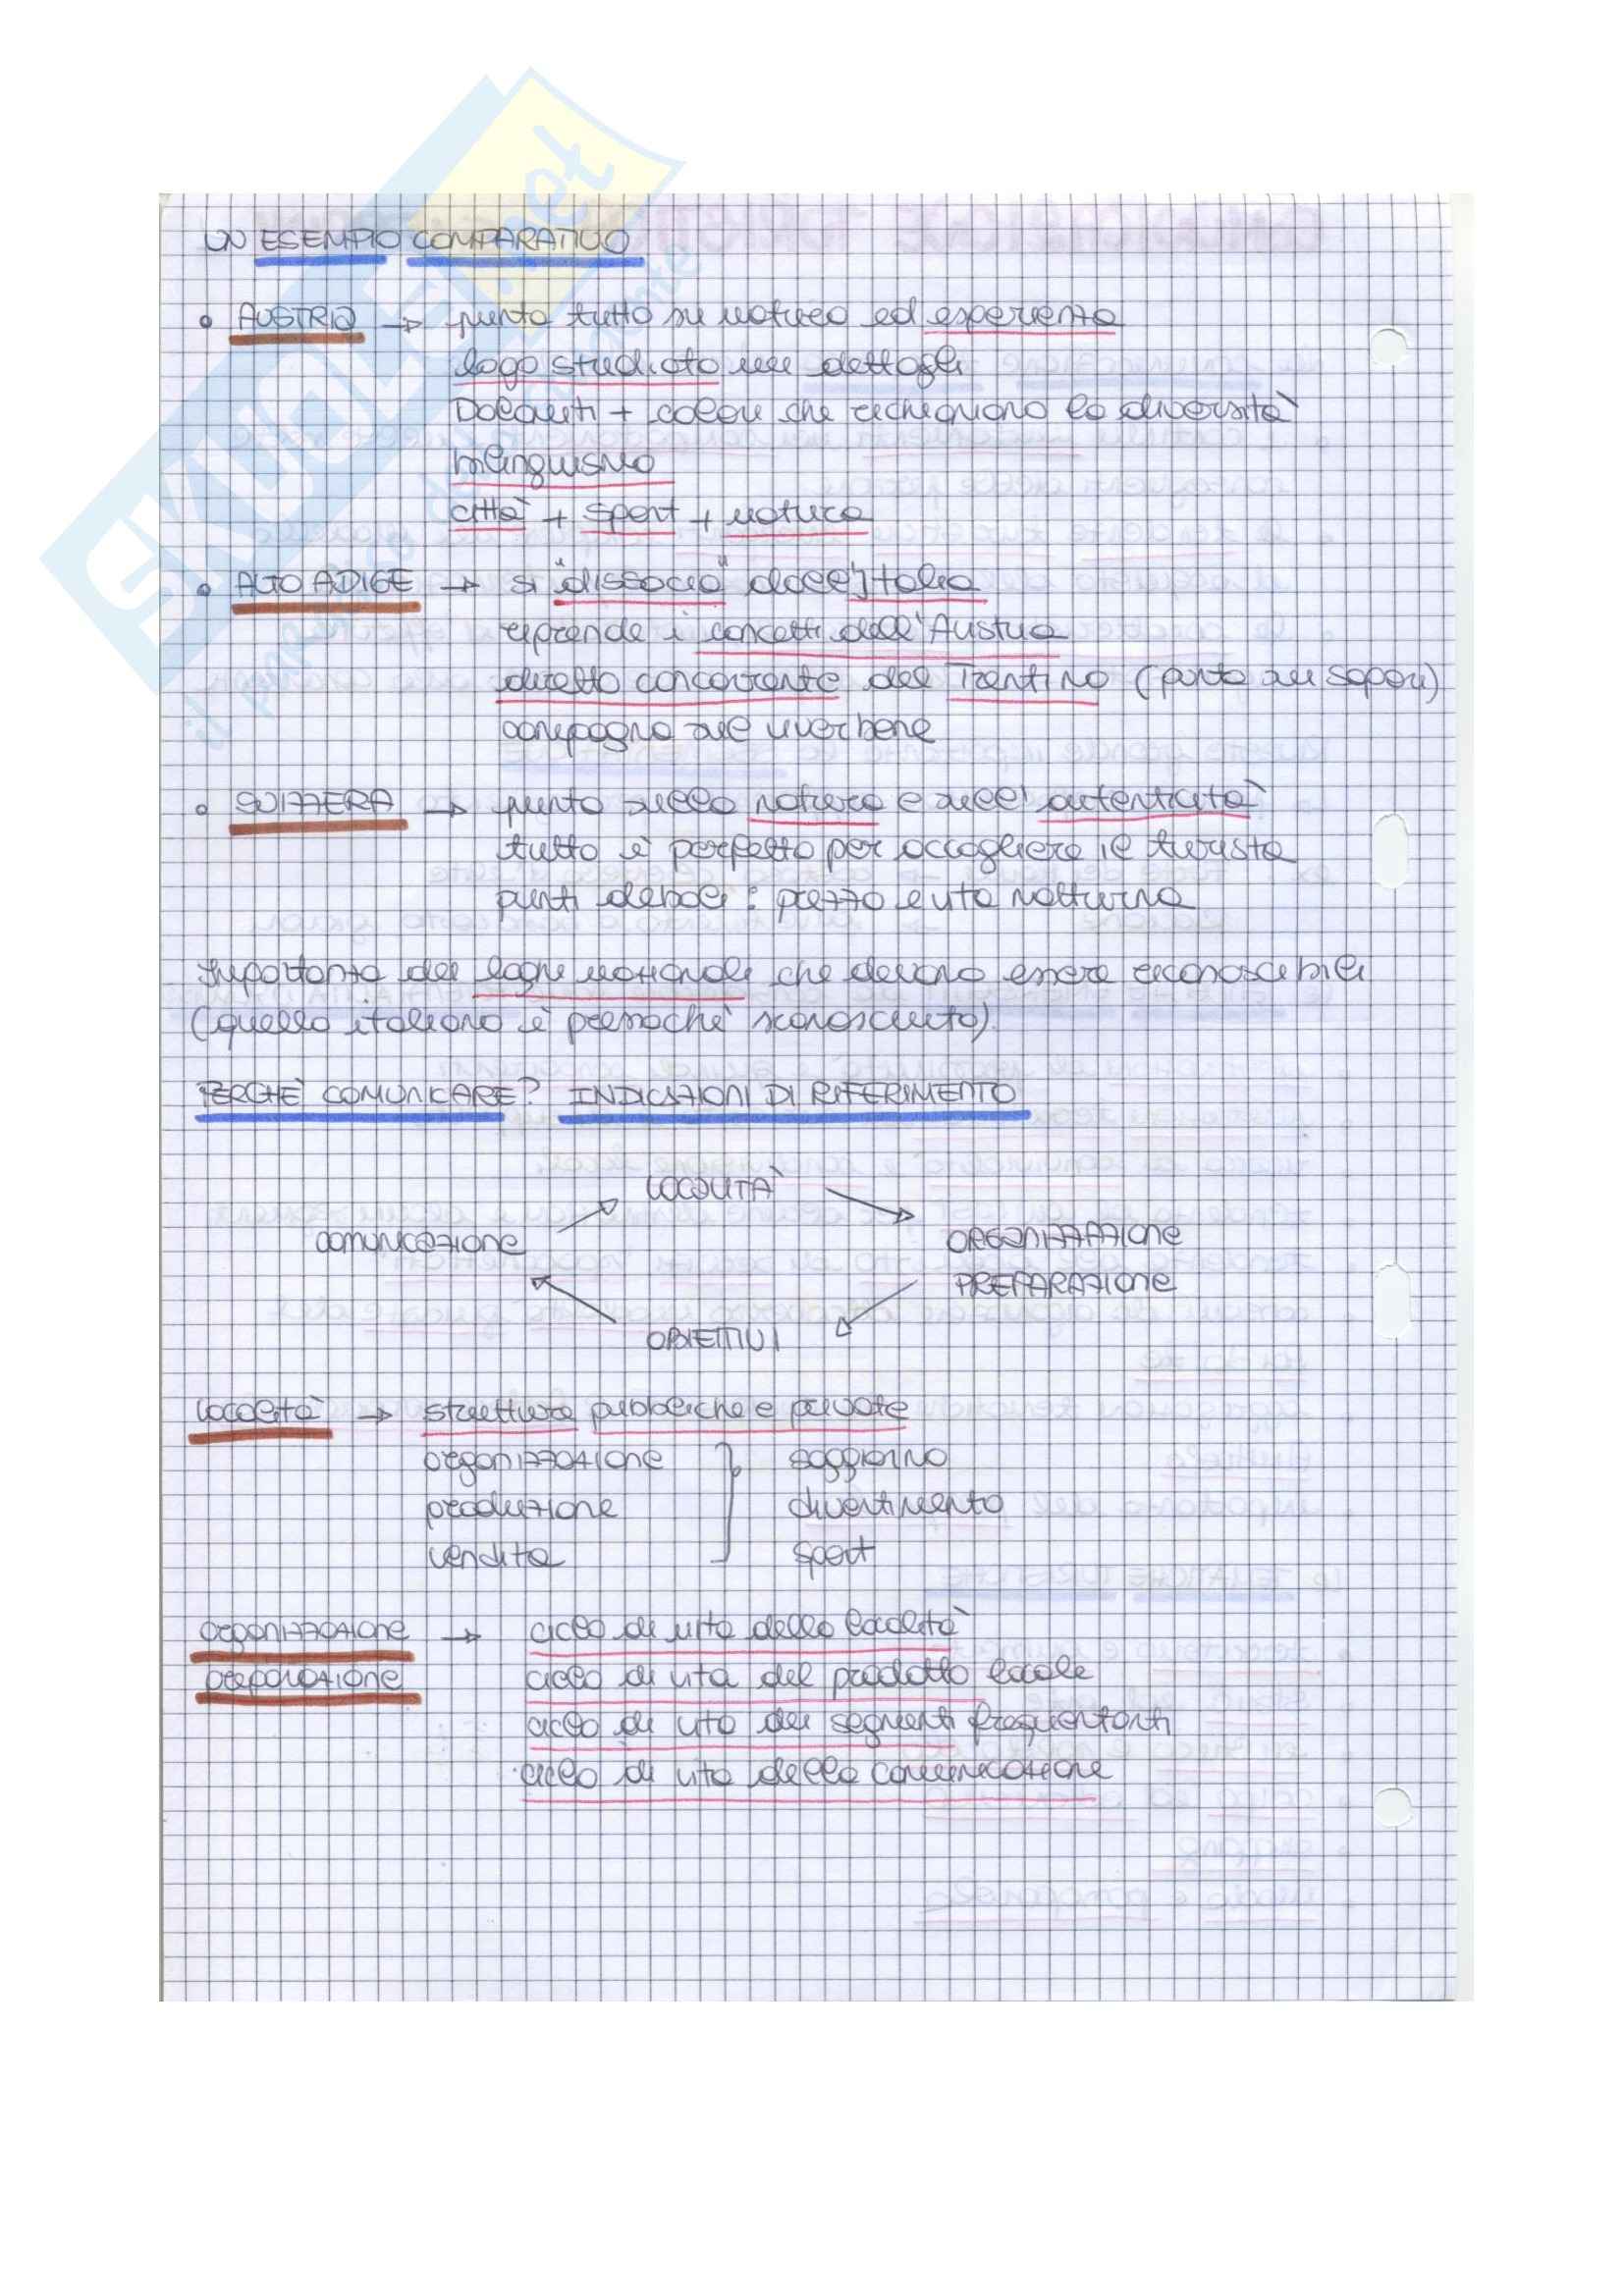 UN ESEMPIO COMPARATIVO
• AUSTRIA → punta tutto su natura ed esperienza
logo studiato nei dettagli
Dolomiti + colori che richiamano la diversità
bilinguismo
città + sport + natura
• ALTO ADIGE → si "dissocia" dall'Italia
riprende i concetti dell'Austria
diretto concorrente del Trentino (punta sui sapori)
campagna sul viver bene
• SVIZZERA → punta sulla natura e sull'autenticità
tutto è perfetto per accogliere il turista
punti deboli: prezzo e vita notturna
Importanza dei loghi nazionali che devono essere riconoscibili
(quello italiano è pressoché sconosciuto).
PERCHÈ COMUNICARE? INDICAZIONI DI RIFERIMENTO
LOCALITÀ
COMUNICAZIONE
ORGANIZZAZIONE
PREPARAZIONE
OBIETTIVI
Località → struttura pubbliche e private
organizzazione } soggiorno
produzione divertimento
vendita sport
organizzazione → ciclo di vita della località
preparazione ciclo di vita del prodotto locale
ciclo di vita dei segmenti frequentanti
ciclo di vita della comunicazione
SKUOLA.net